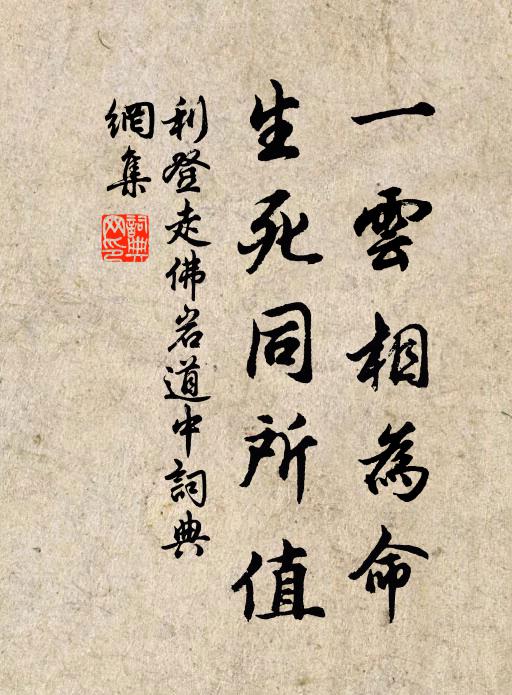 一雲相為命
生死同所值
利登走佛岩道中詞典
網集
詞典
网印